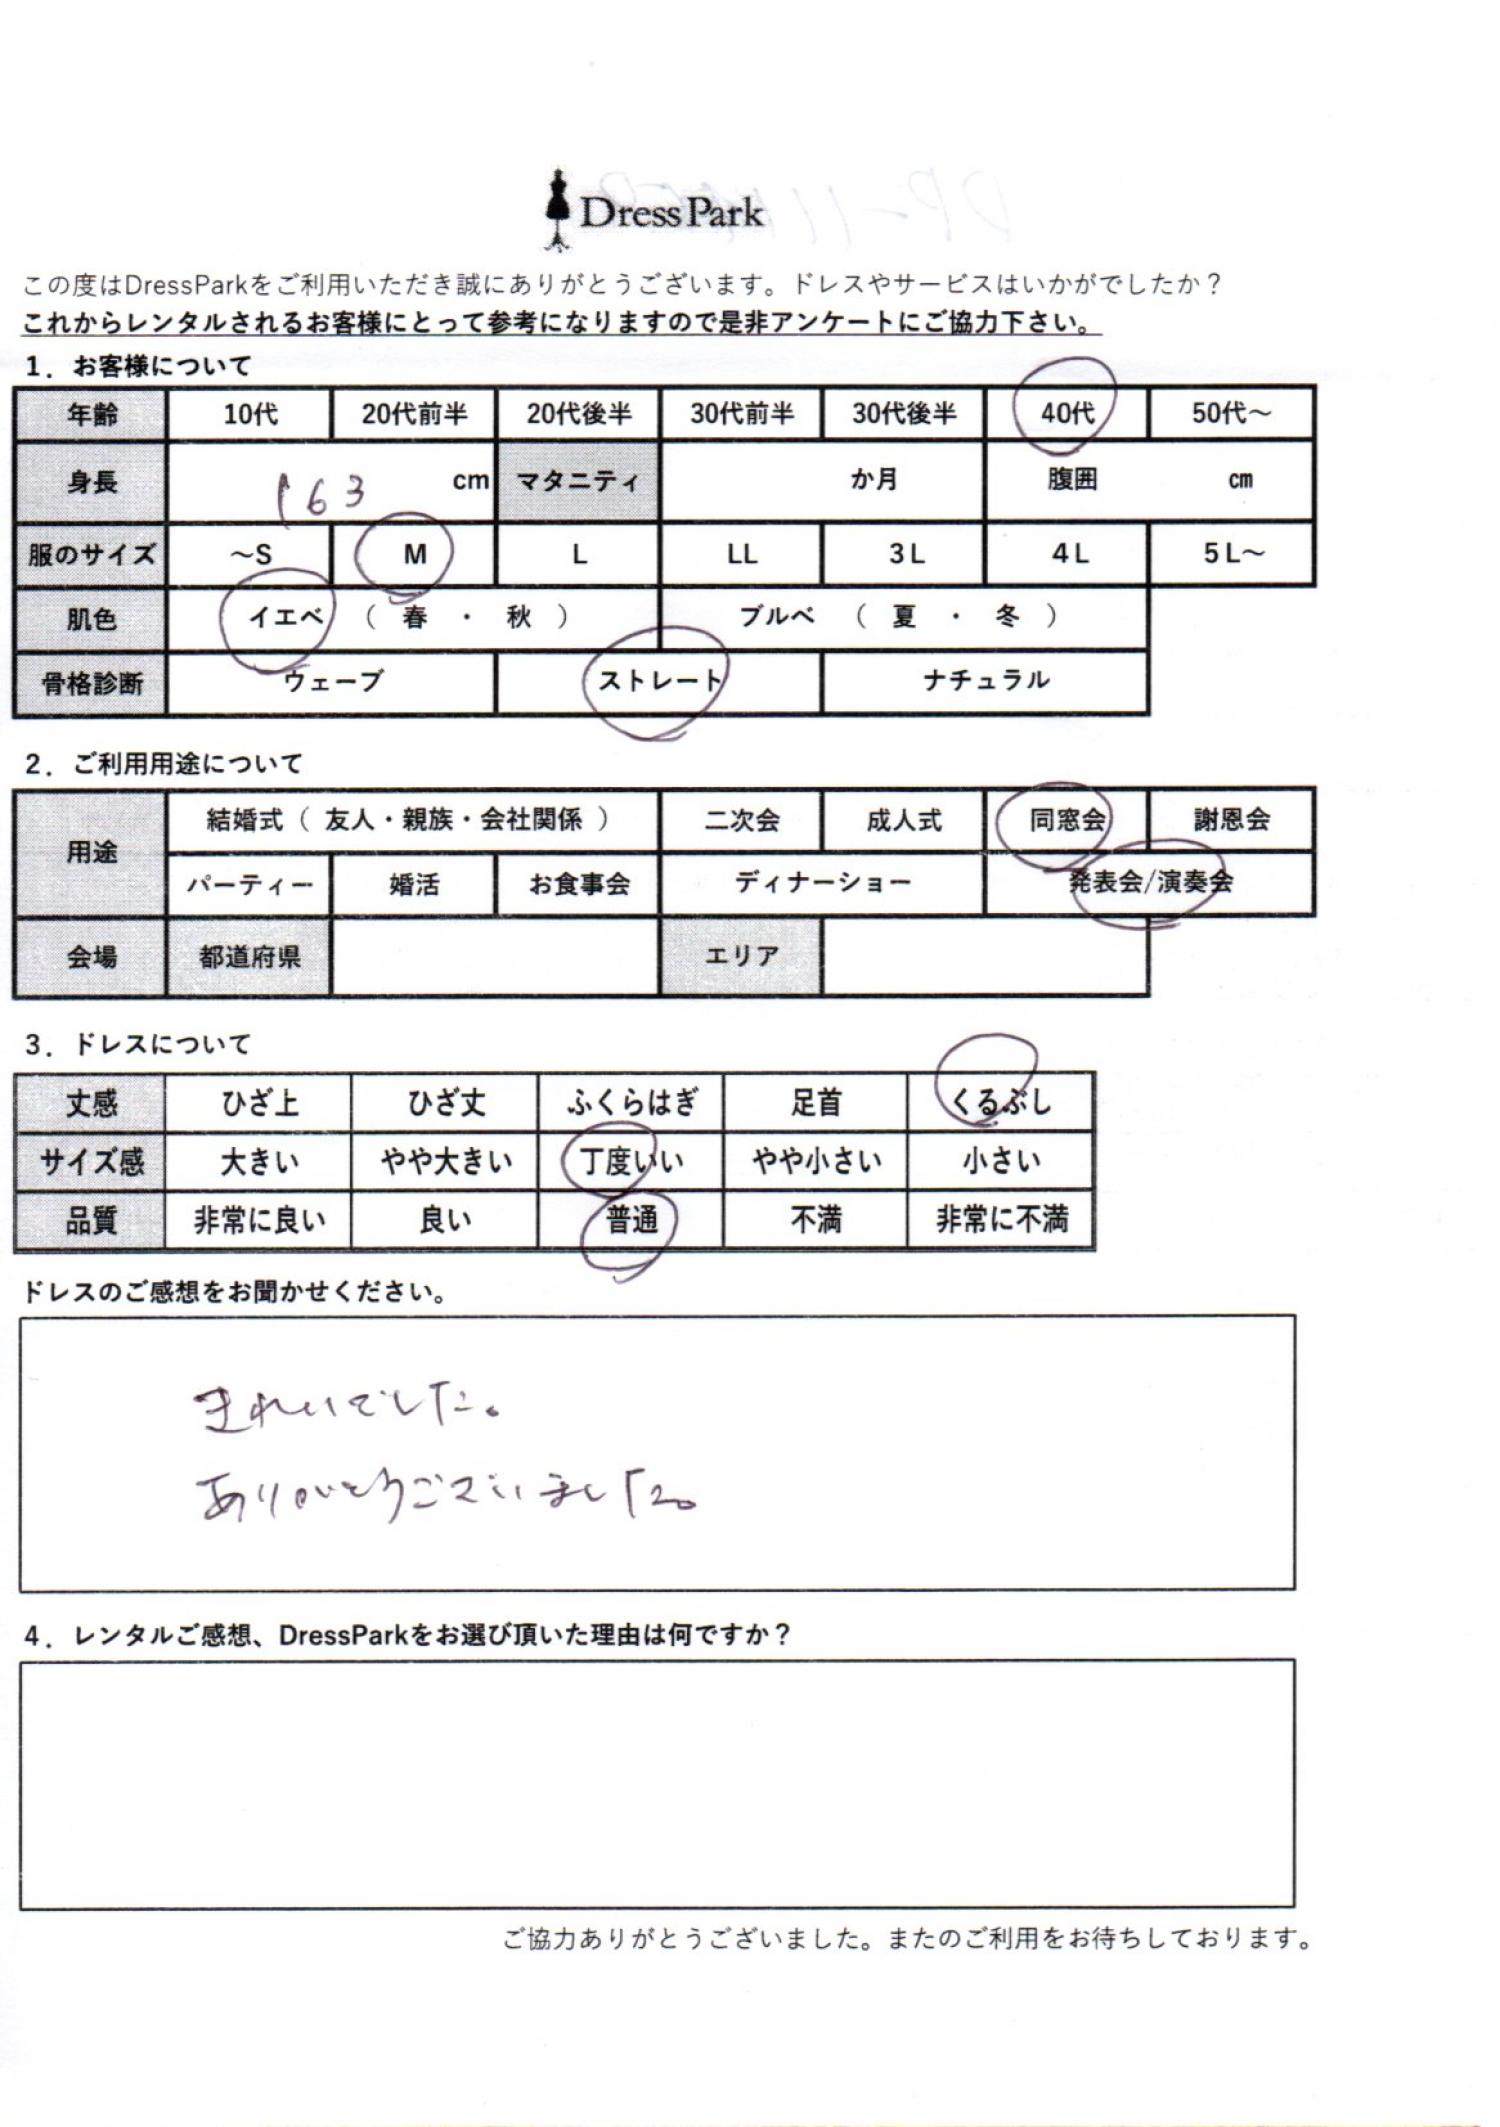 DressPark
この度はDressParkをご利用いただき誠にありがとうございます。ドレスやサービスはいかがでしたか？
これからレンタルされるお客様にとって参考になりますので是非アンケートにご協力下さい。
1．お客様について
年齢 10代 20代前半 20代後半 30代前半 30代後半 40代 50代～
身長 163 cm マタニティ か月 腹囲 ㎝
服のサイズ ～S M L LL 3L 4L 5L～
肌色 イエベ （ 春 ・ 秋 ） ブルベ （ 夏 ・ 冬 ）
骨格診断 ウェーブ ストレート ナチュラル
2．ご利用用途について
用途 結婚式（ 友人・親族・会社関係 ） 二次会 成人式 同窓会 謝恩会
パーティー 婚活 お食事会 ディナーショー 発表会/演奏会
会場 都道府県 エリア
3．ドレスについて
丈感 ひざ上 ひざ丈 ふくらはぎ 足首 くるぶし
サイズ感 大きい やや大きい 丁度いい やや小さい 小さい
品質 非常に良い 良い 普通 不満 非常に不満
ドレスのご感想をお聞かせください。
きれいでした。
ありがとうございました。
4．レンタルご感想、DressParkをお選び頂いた理由は何ですか？
ご協力ありがとうございました。またのご利用をお待ちしております。